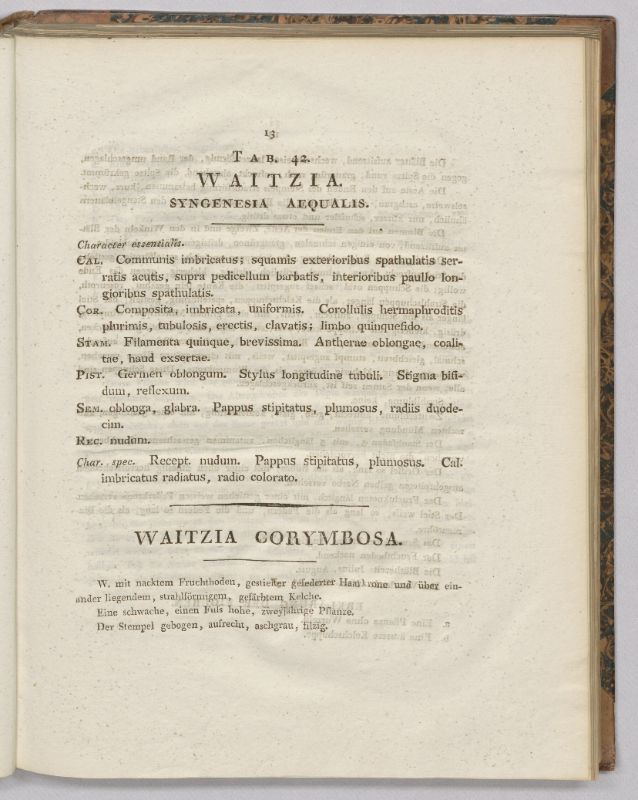 13
TAB. 42.
WAITZIA.
SYNGENESIA AEQUALIS.
Character essentialis.
CAL. Communis imbricatus; squamis exterioribus spathulatis ser-
ratis acutis, supra pedicellum barbatis, interioribus paullo lon-
gioribus spathulatis.
COR. Composita, imbricata, uniformis. Corollulis hermaphroditis
plurimis, tubulosis, erectis, clavatis; limbo quinquefido.
STAM. Filamenta quinque, brevissima. Antherae oblongae, coali-
tae, haud exsertae.
PIST. Germen oblongum. Stylus longitudine tubuli. Stigma bifi-
dum, reflexum.
SEM. oblonga, glabra. Pappus stipitatus, plumosus, radiis duode-
cim.
REC. nudum.
Char. spec. Recept. nudum. Pappus stipitatus, plumosus. Cal.
imbricatus radiatus, radio colorato.
WAITZIA CORYMBOSA.
W. mit nacktem Fruchtboden, gestielter gefederter Haarkrone und über ein-
ander liegendem, strahlförmigem, gefärbtem Kelche.
Eine schwache, einen Fuſs hohe, zweyjährige Pflanze.
Der Stempel gebogen, aufrecht, aschgrau, filzig.